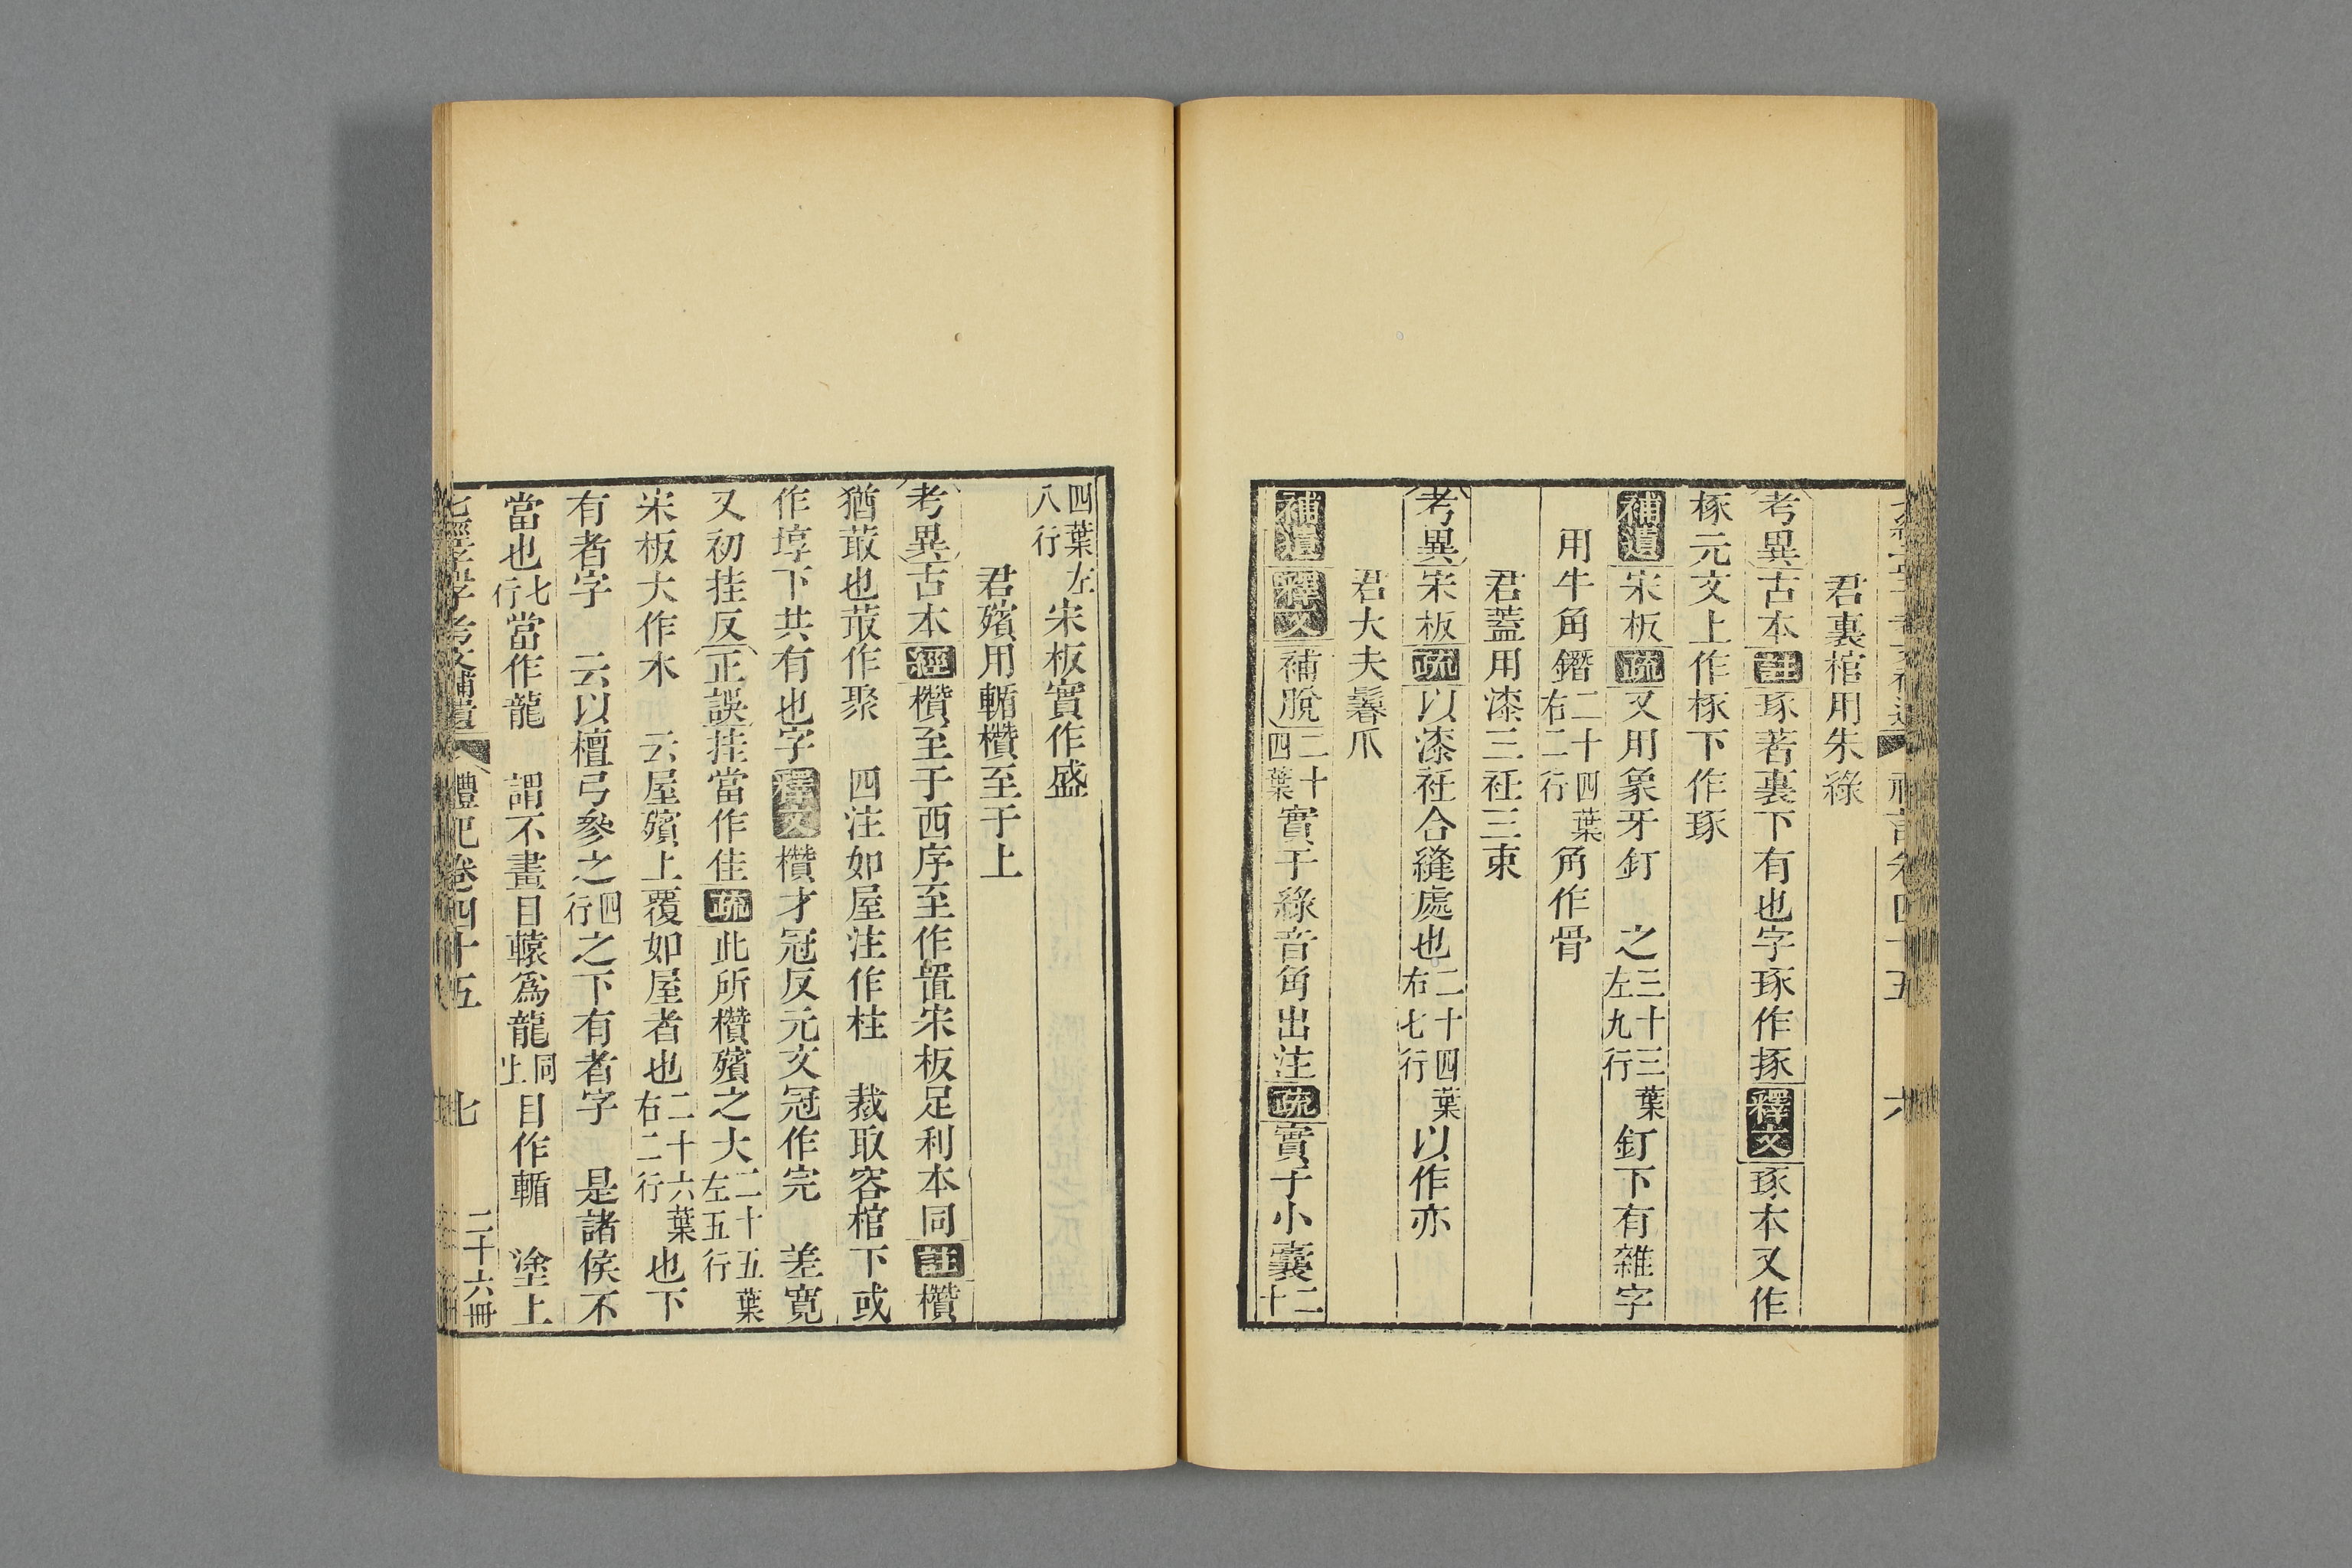 君裏棺用朱綠
考異古本註琢著裏下有也字琢作掭釋文琢本又作
椓元文上作椓下作琢
補遺宋板疏又用象牙釘 之三十三葉左九行釘下有雜字
用牛角鐕二十四葉右二行角作骨
君蓋用漆三衽三束
考異宋板疏以漆衽合縫處也二十四葉右七行以作亦
君大夫鬊爪
補遺釋文補脫二十四葉實于綠音角出注疏實于小囊二十
四葉左八行宋板實作盛
君殯用輴欑至于上
考異古本經欑至于西序至作置宋板足利本同註欑
猶菆也菆作聚 四注如屋注作柱 裁取容棺下或
作埻下共有也字釋文欑才冠反元文冠作完 差寬
又初挂反正誤挂當作佳疏此所欑殯之大二十五葉左五行
宋板大作木 云屋殯上覆如屋者也二十六葉右二行也下
有者字 云以檀弓參之四行之下有者字 是諸侯不
當也七行當作龍 謂不畫目轅爲龍同上目作輴 塗上
七經孟子考文補遺 禮記卷四十五 七 二十六冊